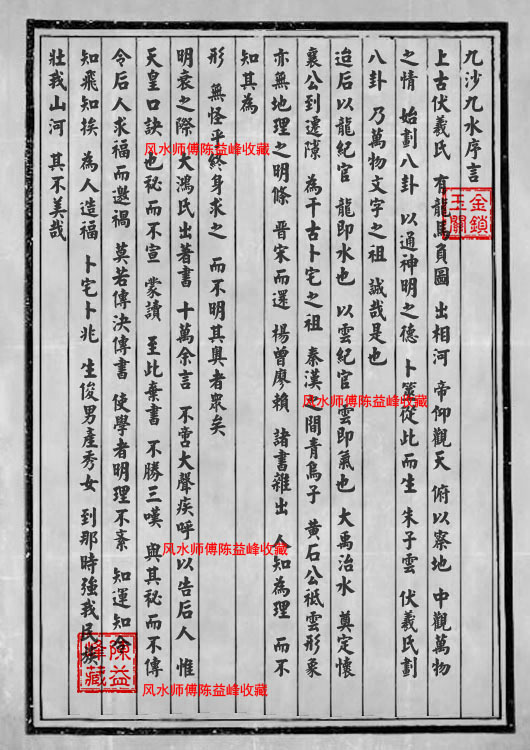 九沙九水序言
上古伏羲氏 有龍馬負圖 出相河 帝仰觀天 俯以察地 中觀萬物
之情 始劃八卦 以通神明之德 卜筮從此而生 朱子雲 伏羲氏劃
八卦 乃萬物文字之祖 誠哉是也
迨后以龍紀官 龍即水也 以雲紀官 雲即氣也 大禹治水 奠定懷
襄公到遷隰 為千古卜宅之祖 秦漢之間青烏子 黃石公祗雲形象
亦無地理之明條 晉宋而還 楊曾廖賴 諸書雜出 人知為理 而不
知其為
形 無怪乎終身求之 而不明其奧者眾矣
明衰之際 大鴻氏出著書 十萬余言 不啻大聲疾呼 以告后人 惟
天皇口訣 也祕而不宣 蒙讀 至此棄書 不勝三嘆 與其祕而不傳
令后人求福而邀禍 莫若傳決傳書 使學者明理不紊 知運知令
知飛知挨 為人造福 卜宅卜兆 生俊男產秀女 到那時強我民族
壯我山河 其不美哉
金鎖
玉關
风水师傅陈益峰收藏
风水师傅陈益峰收藏
风水师傅陈益峰收藏
风水师傅陈益峰收藏
陳益
峰藏